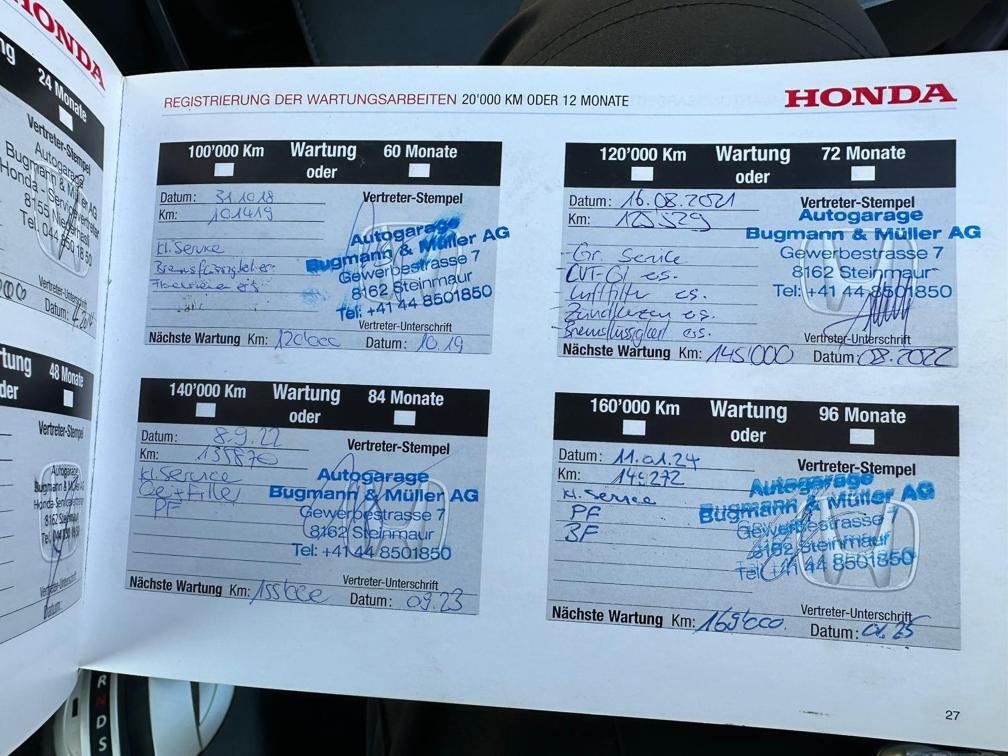 HONDA
24 Monate
Vertreter-Stempel
Autogarage
Bugmann & Müller AG
Honda - Servicevertreter
8155 Niederhasli
Tel. 044 850 18 50
Vertreter-Unterschrift
Datum:
48 Monate
Vertreter-Stempel
Autogarage
Bugmann & Müller AG
REGISTRIERUNG DER WARTUNGSARBEITEN 20'000 KM ODER 12 MONATE
HONDA
100'000 Km Wartung oder 60 Monate
Datum: 31.10.18
Km: 101419
Vertreter-Stempel
kl. Service
Autogarage
Bugmann & Müller AG
Gewerbestrasse 7
8162 Steinmaur
Tel: +41 44 8501850
Vertreter-Unterschrift
Nächste Wartung Km: 120'000 Datum: 10.19
120'000 Km Wartung oder 72 Monate
Datum: 16.08.2021
Km:
Vertreter-Stempel
Gr. Service
CVT-Öl es.
Luftfilter es.
Zündkerzen es.
Bremsflüssigkeit es.
Autogarage
Bugmann & Müller AG
Gewerbestrasse 7
8162 Steinmaur
Tel: +41 44 8501850
Vertreter-Unterschrift
Nächste Wartung Km: 145'000 Datum: 08.2022
140'000 Km Wartung oder 84 Monate
Datum: 8.9.22
Km: 135870
Vertreter-Stempel
kl. Service
Oel + Filter
PF
Autogarage
Bugmann & Müller AG
Gewerbestrasse 7
8162 Steinmaur
Tel: +41 44 8501850
Vertreter-Unterschrift
Nächste Wartung Km: 155'000 Datum: 09.23
160'000 Km Wartung oder 96 Monate
Datum: 11.01.24
Km: 149272
Vertreter-Stempel
kl. Service
PF
BF
Autogarage
Bugmann & Müller AG
Gewerbestrasse 7
8162 Steinmaur
Tel: +41 44 8501850
Vertreter-Unterschrift
Nächste Wartung Km: 169'000 Datum: 01.25
27
R
N
D
S